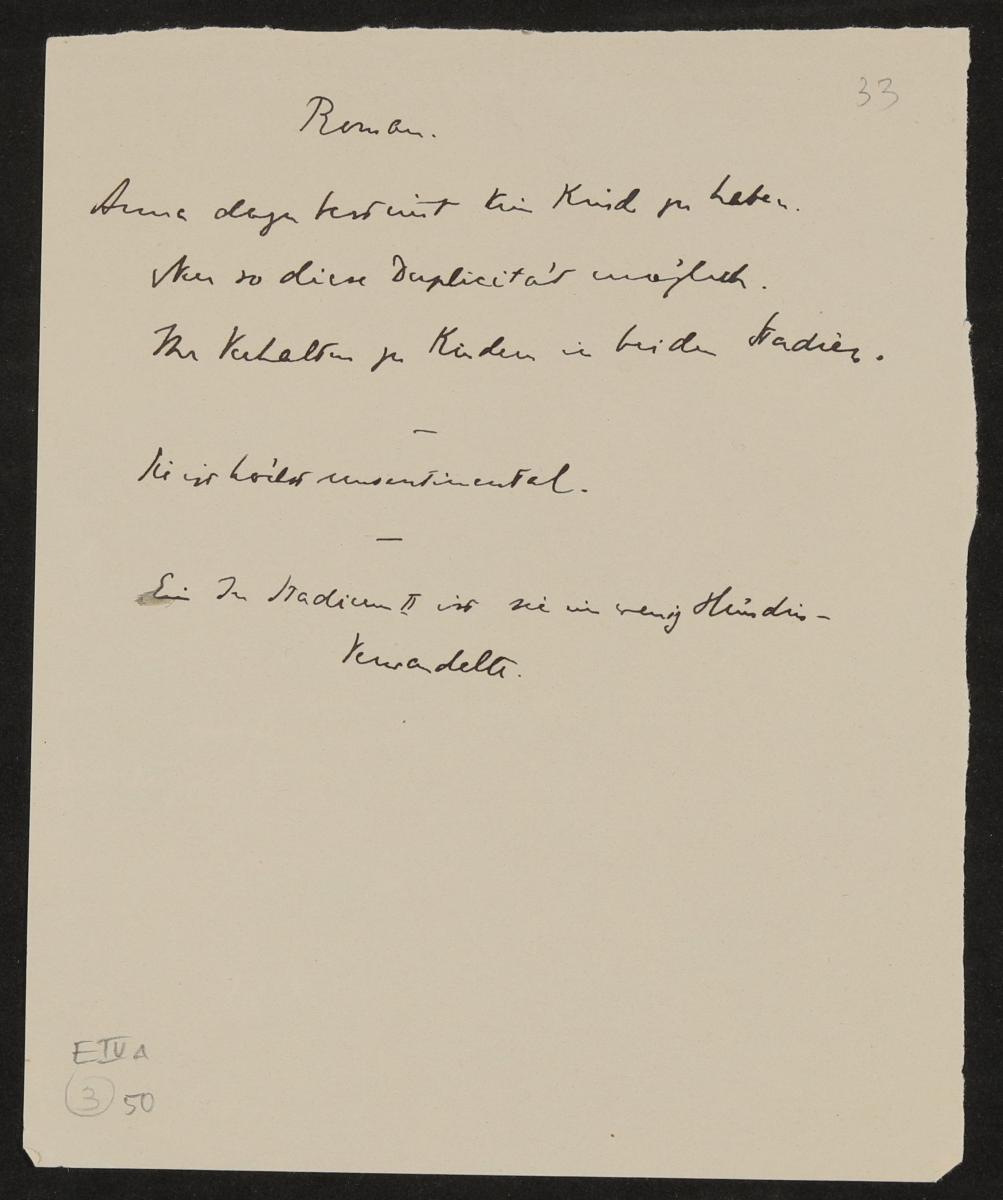 33
Roman.
Anna dazu bestimmt kein Kind zu haben.
Nur so diese Duplicität möglich.
Ihr Verhalten zu Kindern in beiden Stadien.
–
Sie ist höchst unsentimental.
–
Ein In Stadium II ist sie ein wenig Hündin –
Verwandelte.
E IV A
3 50